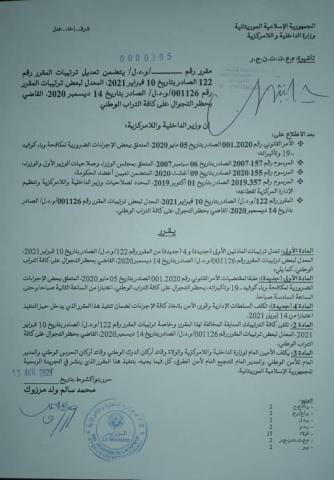 الجمهورية الإسلامية الموريتانية
شرف - إخاء - عدل
وزارة الداخلية واللامركزية
0000395
مقرر رقم ــــــــ/و.د.ل/ يتضمن تعديل ترتيبات المقرر رقم
122 /و.د.ل/ الصادر بتاريخ 10 فبراير 2021، المعدل لبعض ترتيبات المقرر
رقم 001126/و.د.ل/ الصادر بتاريخ 14 ديسمبر 2020، القاضي
بحظر التجوال على كافة التراب الوطني
إن وزير الداخلية واللامركزية،
بعد الاطلاع على:
الأمر القانوني رقم 001.2020 الصادر بتاريخ 05 مايو 2020، المتعلق ببعض الإجراءات الضرورية لمكافحة وباء كوفيد
- 19 وتأثيراته؛
المرسوم رقم 157-2007 الصادر بتاريخ 06 سبتمبر 2007، المتعلق بمجلس الوزراء وصلاحيات الوزير الأول والوزراء؛
المرسوم رقم 155-2020 الصادر بتاريخ 09 أغشت 2020، المتضمن تعيين أعضاء الحكومة؛
المرسوم رقم 357-2019 الصادر بتاريخ 01 أكتوبر 2019، المحدد لصلاحيات وزير الداخلية واللامركزية وتنظيم
الإدارة المركزية لقطاعه؛
المقرر رقم 122/و.د.ل/ الصادر بتاريخ 10 فبراير 2021، المعدل لبعض ترتيبات المقرر رقم 001126/و.د.ل/ الصادر
بتاريخ 14 ديسمبر 2020، القاضي بحظر التجوال على كافة التراب الوطني.
يقرر
المادة الأولى: تعدل ترتيبات المادتين الأولى (جديدة) و4 (جديدة) من المقرر رقم 122/و.د.ل/ الصادر بتاريخ 10 فبراير 2021،
المعدل لبعض ترتيبات المقرر رقم 001126/و.د.ل/ الصادر بتاريخ 14 ديسمبر 2020، القاضي بحظر التجوال على كافة التراب
الوطني، كما يلي:
المادة الأولى (جديدة): طبقا لمقتضيات الأمر القانوني رقم 001.2020 الصادر بتاريخ 05 مايو 2020، المتعلق ببعض الإجراءات
الضرورية لمكافحة وباء كوفيد - 19 وتأثيراته، يحظر التجوال على كافة التراب الوطني، اعتبارا من الساعة الثانية صباحا وحتى
الساعة السادسة صباحا.
المادة 4 (جديدة): تكلف السلطات الإدارية وقوى الأمن باتخاذ كافة الإجراءات لضمان تنفيذ هذا المقرر الذي يدخل حيز التنفيذ
اعتبارا من 14 إبريل 2021.
المادة 2: تلغى كافة الترتيبات السابقة المخالفة لهذا المقرر وخاصة ترتيبات المقرر رقم 122/و.د.ل/ الصادر بتاريخ 10 فبراير
2021، المعدل لبعض ترتيبات المقرر رقم 001126/و.د.ل/ الصادر بتاريخ 14 ديسمبر 2020، القاضي بحظر التجوال على كافة
التراب الوطني.
المادة 3: يكلف الأمين العام لوزارة الداخلية واللامركزية والولاة وقائد أركان الدرك الوطني وقائد أركان الحرس الوطني والمدير
العام للأمن الوطني والمدير العام للتجمع العام لأمن الطرق، كل فيما يعنيه، بتنفيذ هذا المقرر الذي ينشر في الجريدة الرسمية
للجمهورية الإسلامية الموريتانية.
حرر بنواكشوط بتاريخ
13 AVR 2021
محمد سالم ولد مرزوك
الوزير
Le Ministre